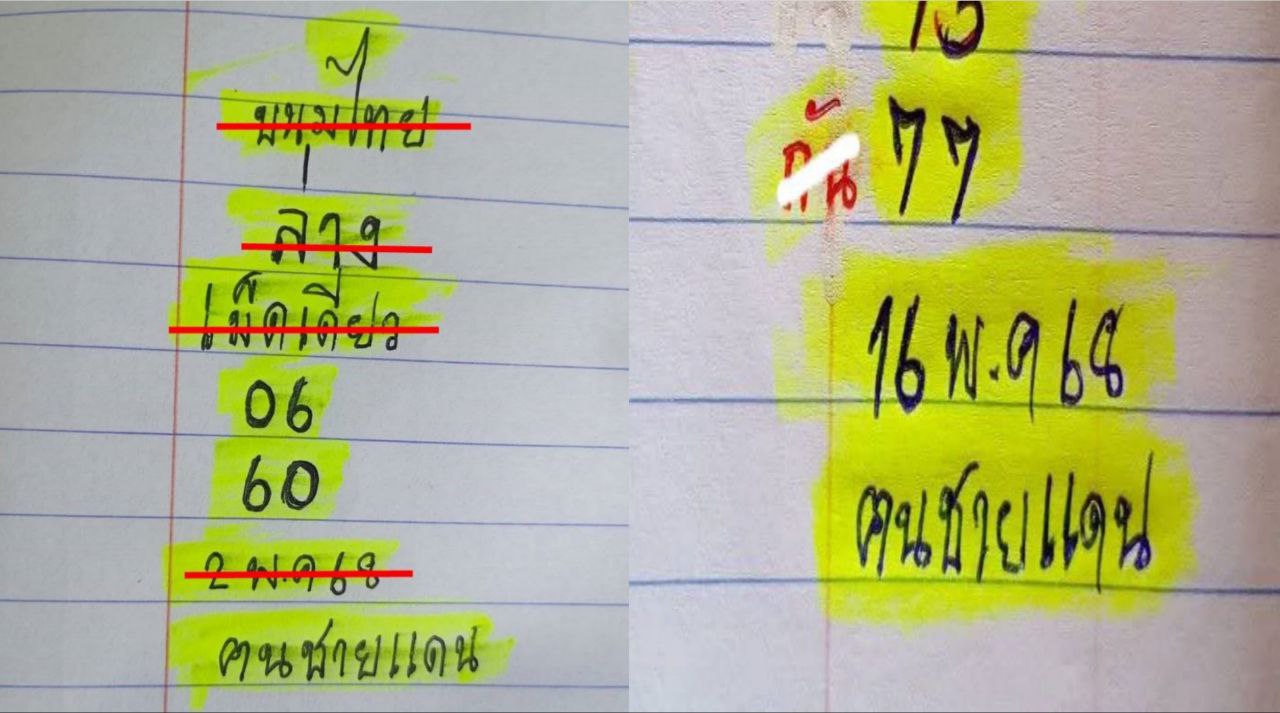 ขนมไทย
ล่าง
เม็ดเดียว
06
60
2 พ.ค 68
ฅนชายแดน
77
กัน
16 พ.ค 68
ฅนชายแดน